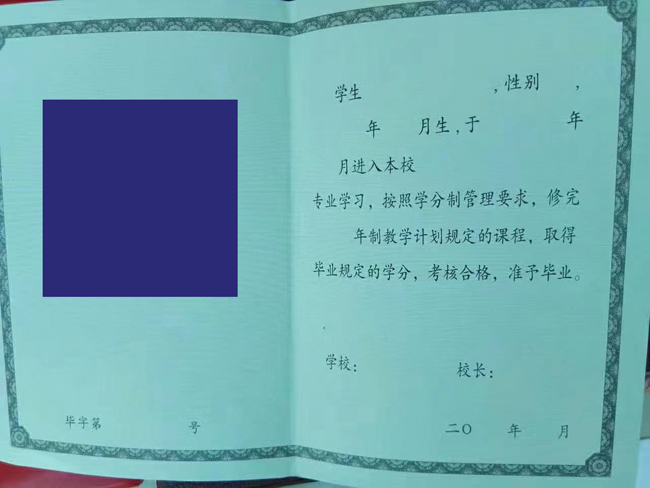 学生 ，性别 ，
年 月生，于 年
月进入本校
专业学习，按照学分制管理要求，修完
年制教学计划规定的课程，取得
毕业规定的学分，考核合格，准予毕业。
学校： 校长：
毕字第 号
二〇 年 月